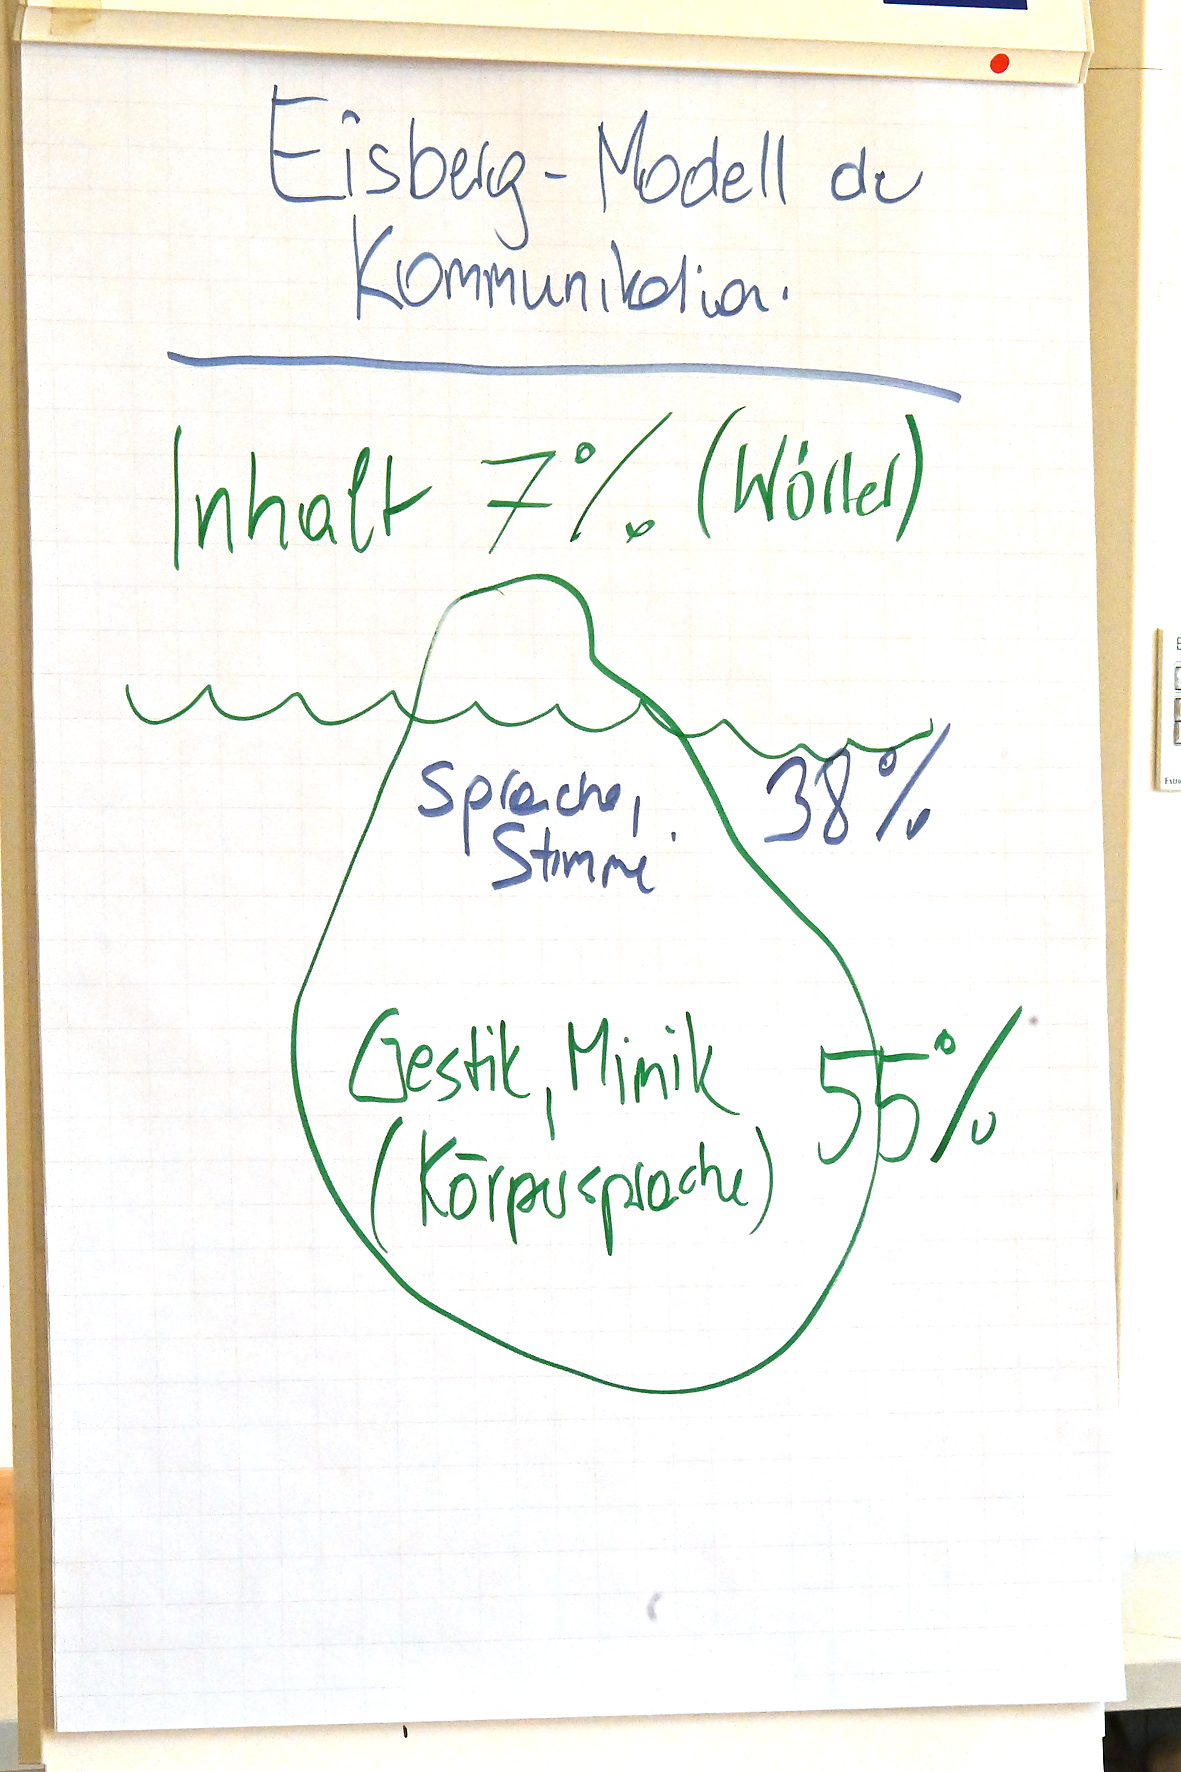 Eisberg-Modell der
Kommunikation.
Inhalt 7% (Wörter)
Sprache,
Stimme
38%
Gestik, Mimik
55%
(Körpersprache)